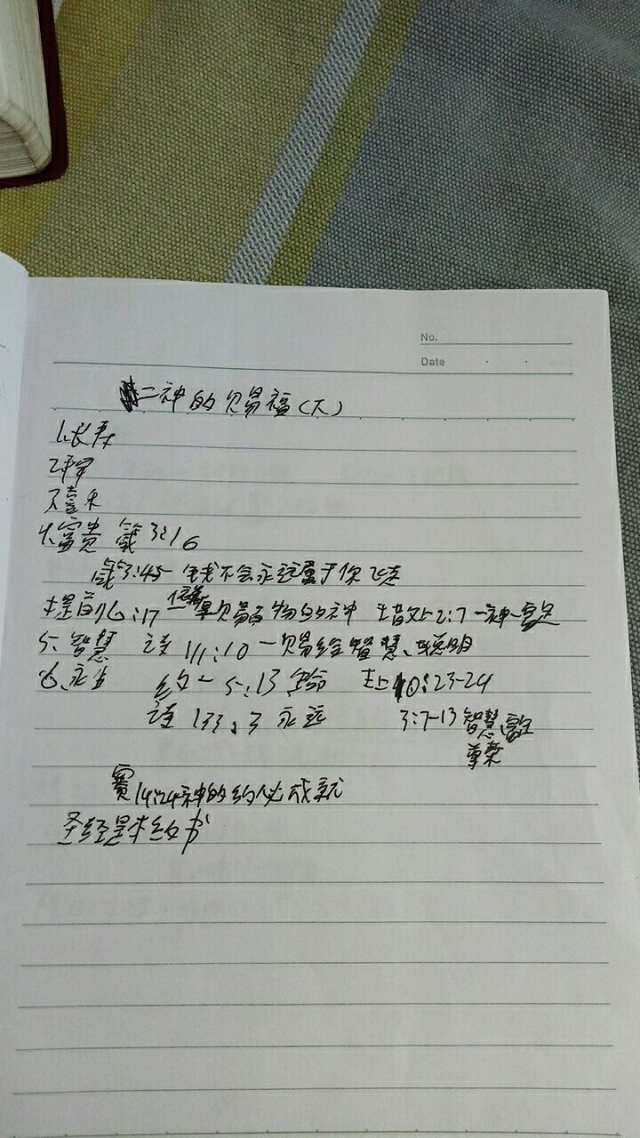 No.
Date
二神的赐福(下)
1.长寿
2.平安
3.喜乐
4.富贵 箴3:16
箴3:45-钱不会永远属于你飞走
提前6:17-信靠厚赐百物的神 撒上2:7-神
5.智慧 诗111:10-赐给智慧、聪明
6、永生 约一5:13 生命 王上10:23-24
诗133:3 永远 3:7-13智慧、富足
尊荣
赛14:24神的约必成就
圣经是本约书